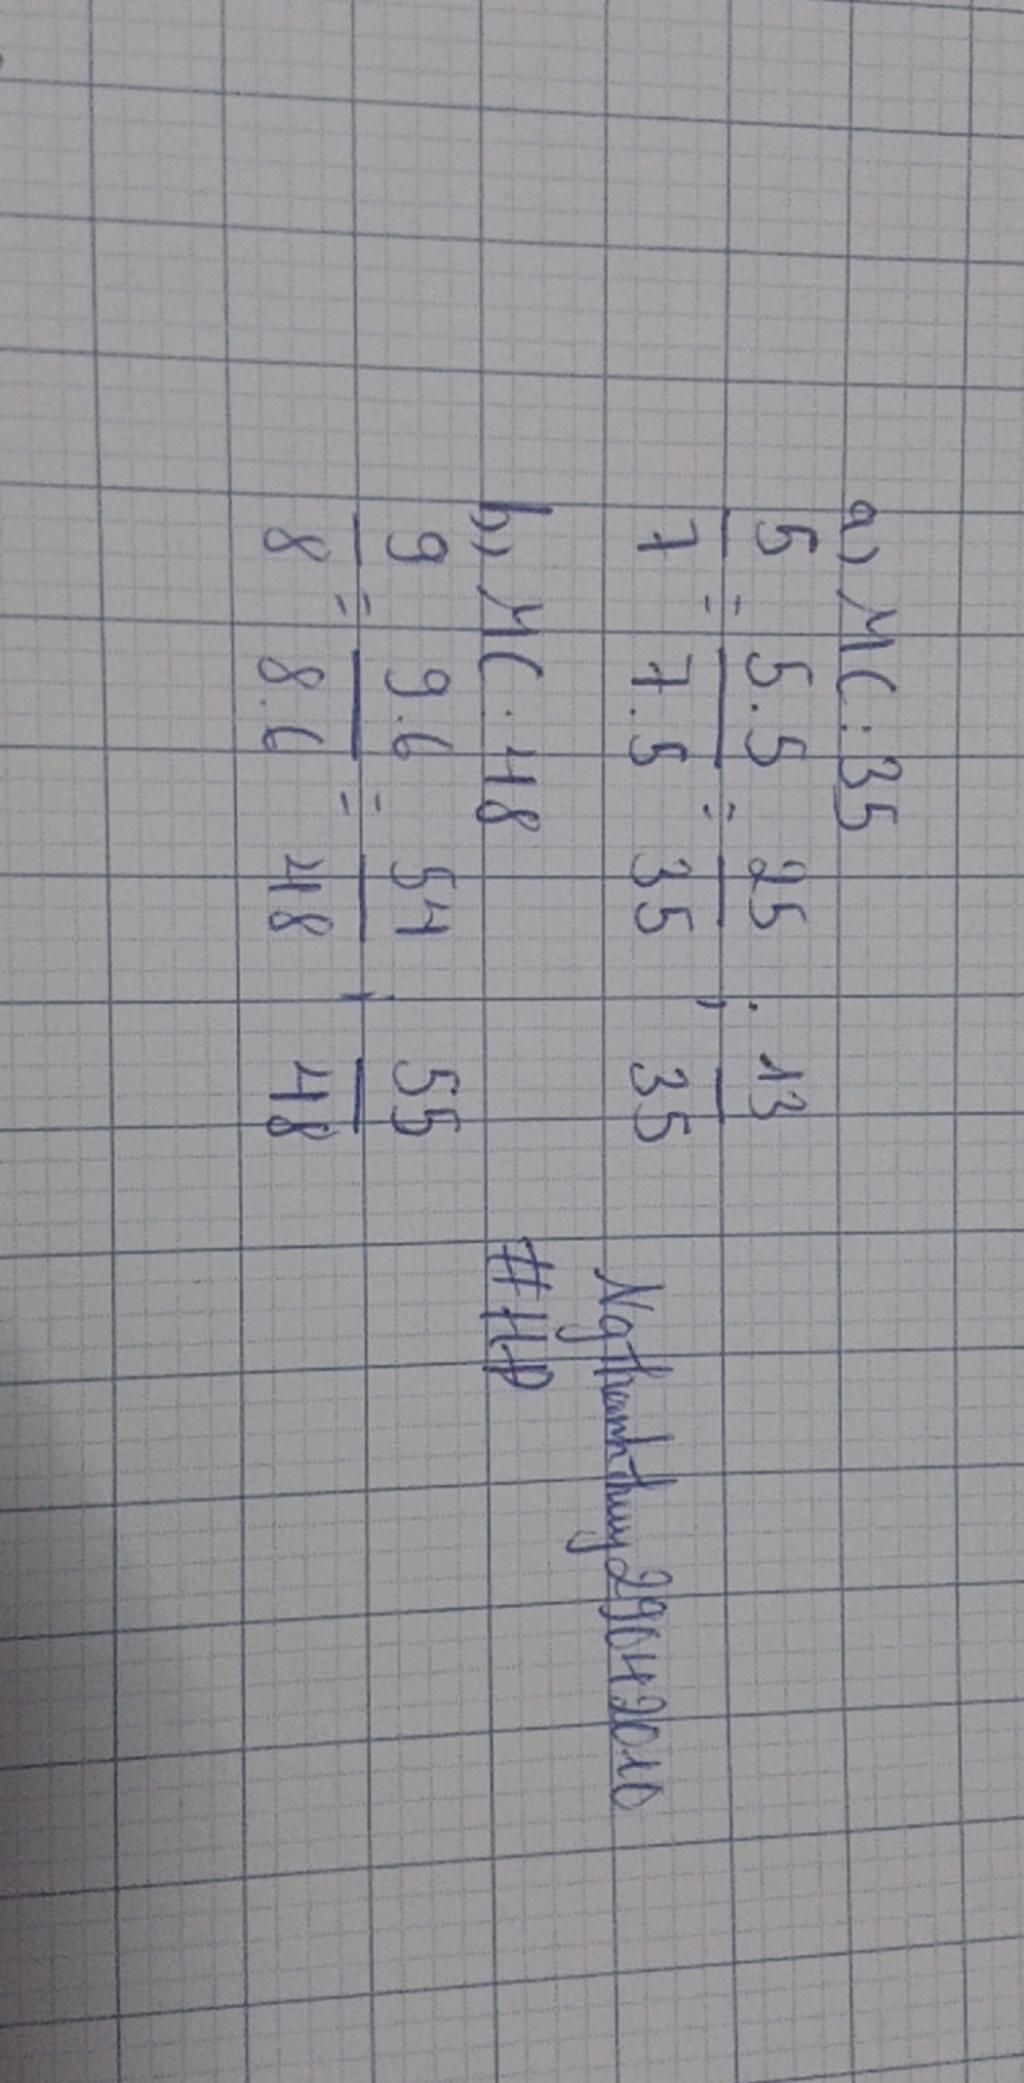 a) MC: 35
5/7 = 5.5/7.5 = 25/35 ; 13/35
b) MC: 48
9/8 = 9.6/8.6 = 54/48 ; 55/48
Ngthanhthuy29042010
#HD